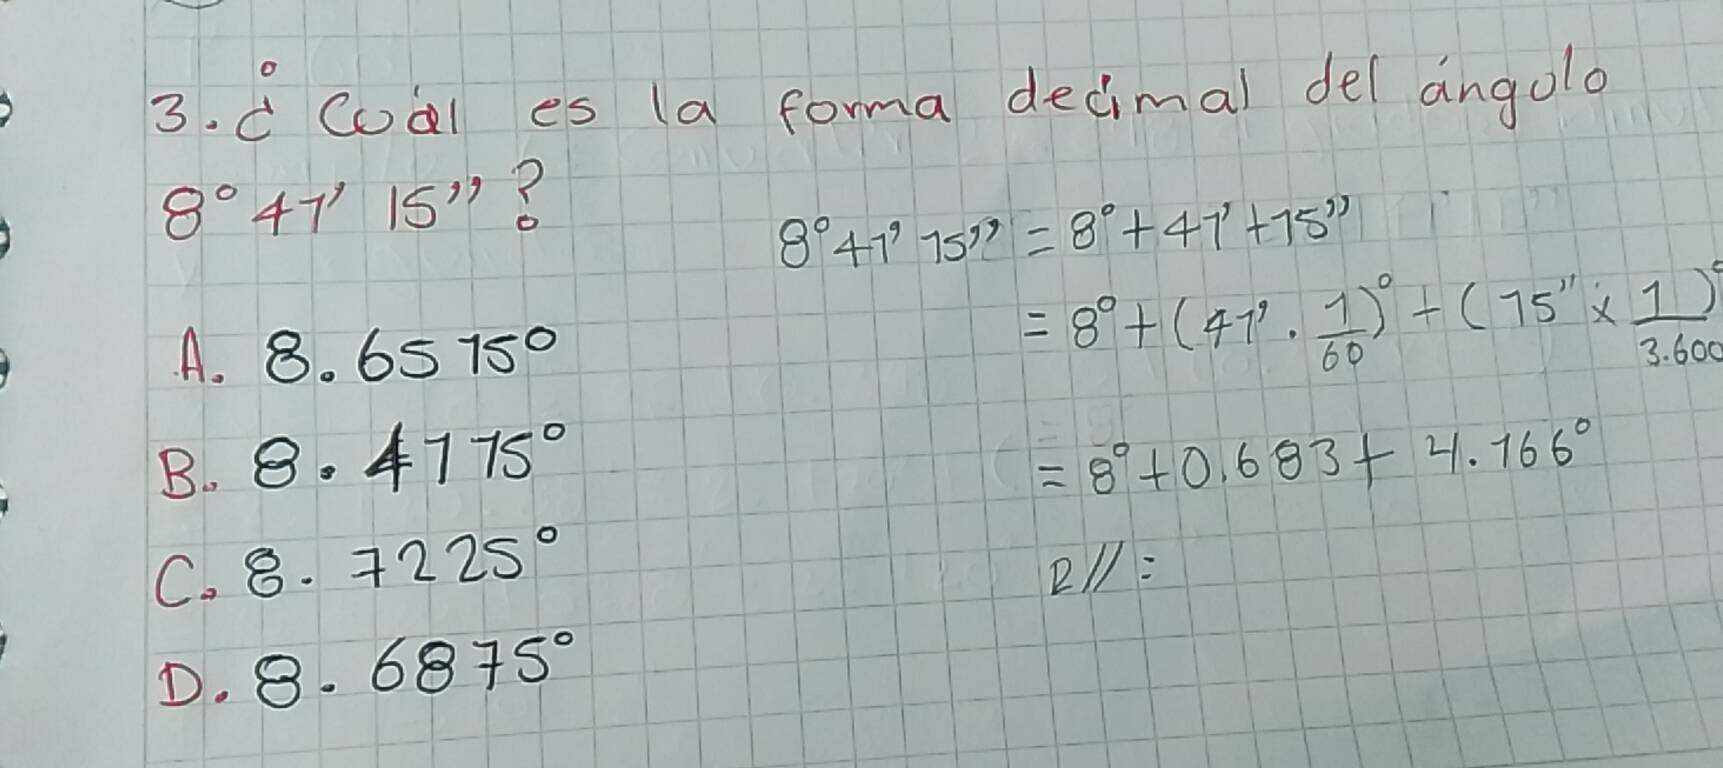 3. ¿Cuál es la forma decimal del ángulo
8° 41' 15" ?
A. 8.6515°
B. 8.4115°
C. 8.7225°
D. 8.6875°
8° 41' 15" = 8° + 41' + 15"
= 8° + (41' · 1/60)° + (15" × 1/3.600)°
= 8° + 0.683 + 4.166°
R//: